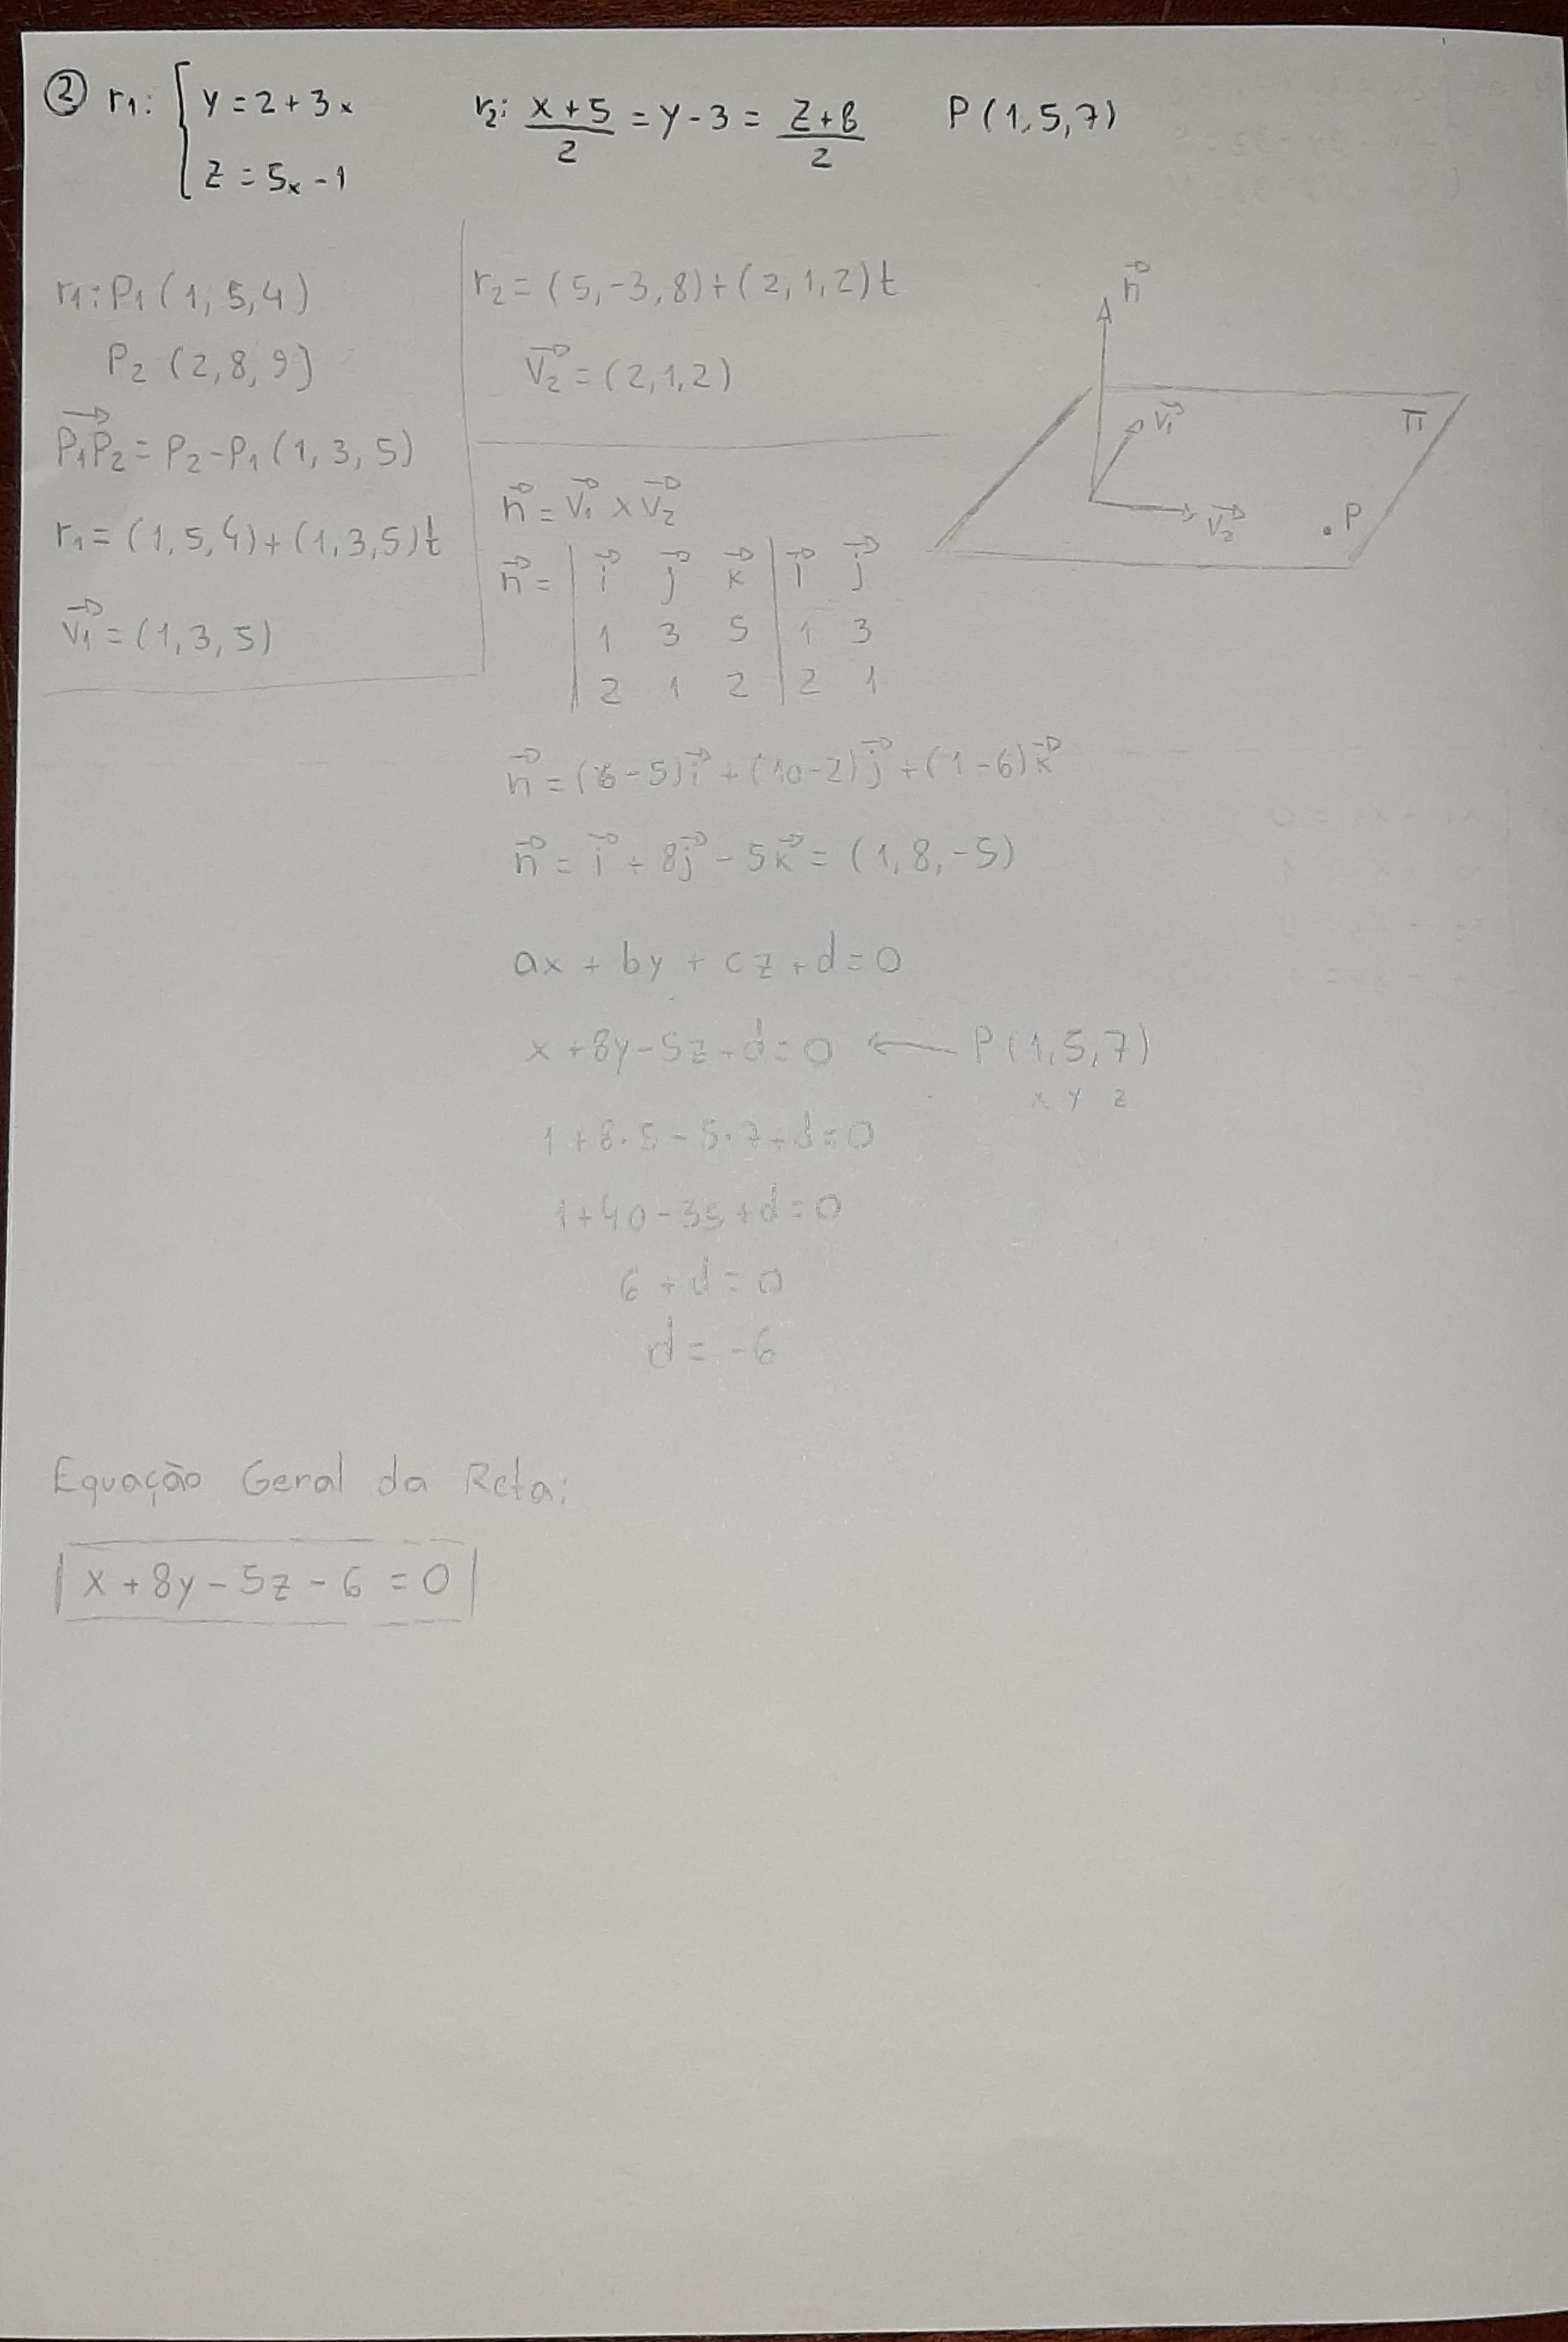 ② r₁: { y = 2 + 3x
z = 5x - 1
r₂: x + 5 / 2 = y - 3 = z + 8 / 2
P (1, 5, 7)
r₁: P₁ (1, 5, 4)
P₂ (2, 8, 9)
P₁P₂→ = P₂ - P₁ (1, 3, 5)
r₁ = (1, 5, 4) + (1, 3, 5)t
v₁→ = (1, 3, 5)
r₂ = (5, -3, 8) + (2, 1, 2)t
v₂→ = (2, 1, 2)
n→
v₁→
π
v₂→
P
n→ = v₁→ x v₂→
n→ = | i→ j→ k→ | i→ j→
1 3 5 | 1 3
2 1 2 | 2 1
n→ = (6 - 5)i→ + (10 - 2)j→ + (1 - 6)k→
n→ = i→ + 8j→ - 5k→ = (1, 8, -5)
ax + by + cz + d = 0
x + 8y - 5z + d = 0 ← P (1, 5, 7)
x y z
1 + 8·5 - 5·7 + d = 0
1 + 40 - 35 + d = 0
6 + d = 0
d = -6
Equação Geral da Reta:
x + 8y - 5z - 6 = 0